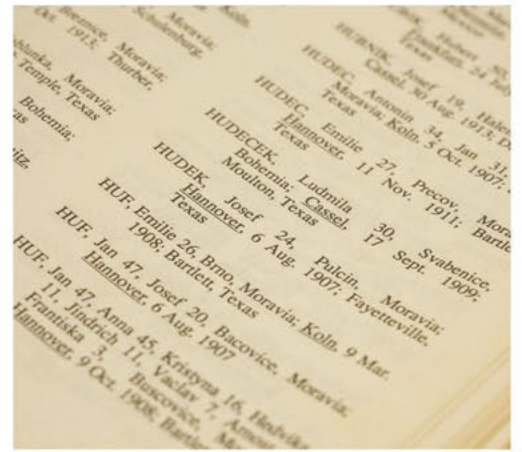 Breznice, Moravia;
Oct. 1913; Thurber,
Moravia;
Temple, Texas
Bohemia;
Koln,
Schulenburg,
Texas
HUBNIK, Josef 19,
Cassel, 30 Aug. 1913;
HUDEC, Antonin 34, Jan 31,
Moravia; Koln, 5 Oct. 1907;
Texas
HUDEC, Emilie 27, Precov,
Hannover, 11 Nov. 1911;
Texas
HUDECEK, Ludmila 30, Svabenice,
Bohemia; Cassel, 17 Sept. 1909;
Moulton, Texas
HUDEK, Josef 24, Pulcin, Moravia;
Hannover, 6 Aug. 1907; Fayetteville,
Texas
HUF, Emilie 26, Brno, Moravia; Koln, 9 Mar.
1908; Bartlett, Texas
HUF, Jan 47, Josef 20, Bacovice, Moravia;
Hannover, 6 Aug. 1907
HUF, Jan 47, Anna 45, Kristyna 16, Hedvika
11, Jindrich 11, Vaclav 7,
Frantiska 3,
Hannover, 9 Oct. 1908;